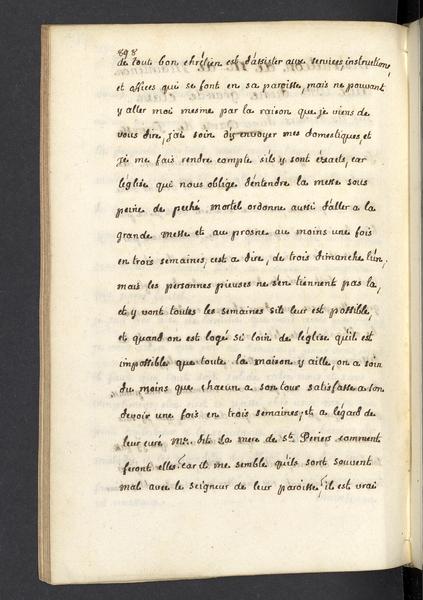 898
de tout bon chrêtien est d'assister aux services instructions,
et offices qui se font en sa paroisse, mais ne pouvant
y aller moi mesme par la raison que je viens de
vous dire, j'ai soin d'y envoyer mes domestiques, et
je me fais rendre compte s'ils y sont éxacts, car
l'église qui nous oblige d'entendre la messe sous
peine de peché mortel ordonne aussi d'aller a la
grande messe et au prosne au moins une fois
en trois semaines, c'est a dire, de trois dimanche l'un,
mais les personnes pieuses ne s'en tiennent pas la,
et y vont toutes les semaines s'il leur est possible,
et quand on est logé si loin de l'eglise qu'il est
impossible que toute la maison y aille, on a soin
du moins que chacun a son tour satisfasse a son
devoir une fois en trois semaines, et a l'égard de
leur curé dit la mere de st. Periers comment
feront elles? car il me semble qu'ils sont souvent
mal avec le seigneur de leur paroisse? il est vrai